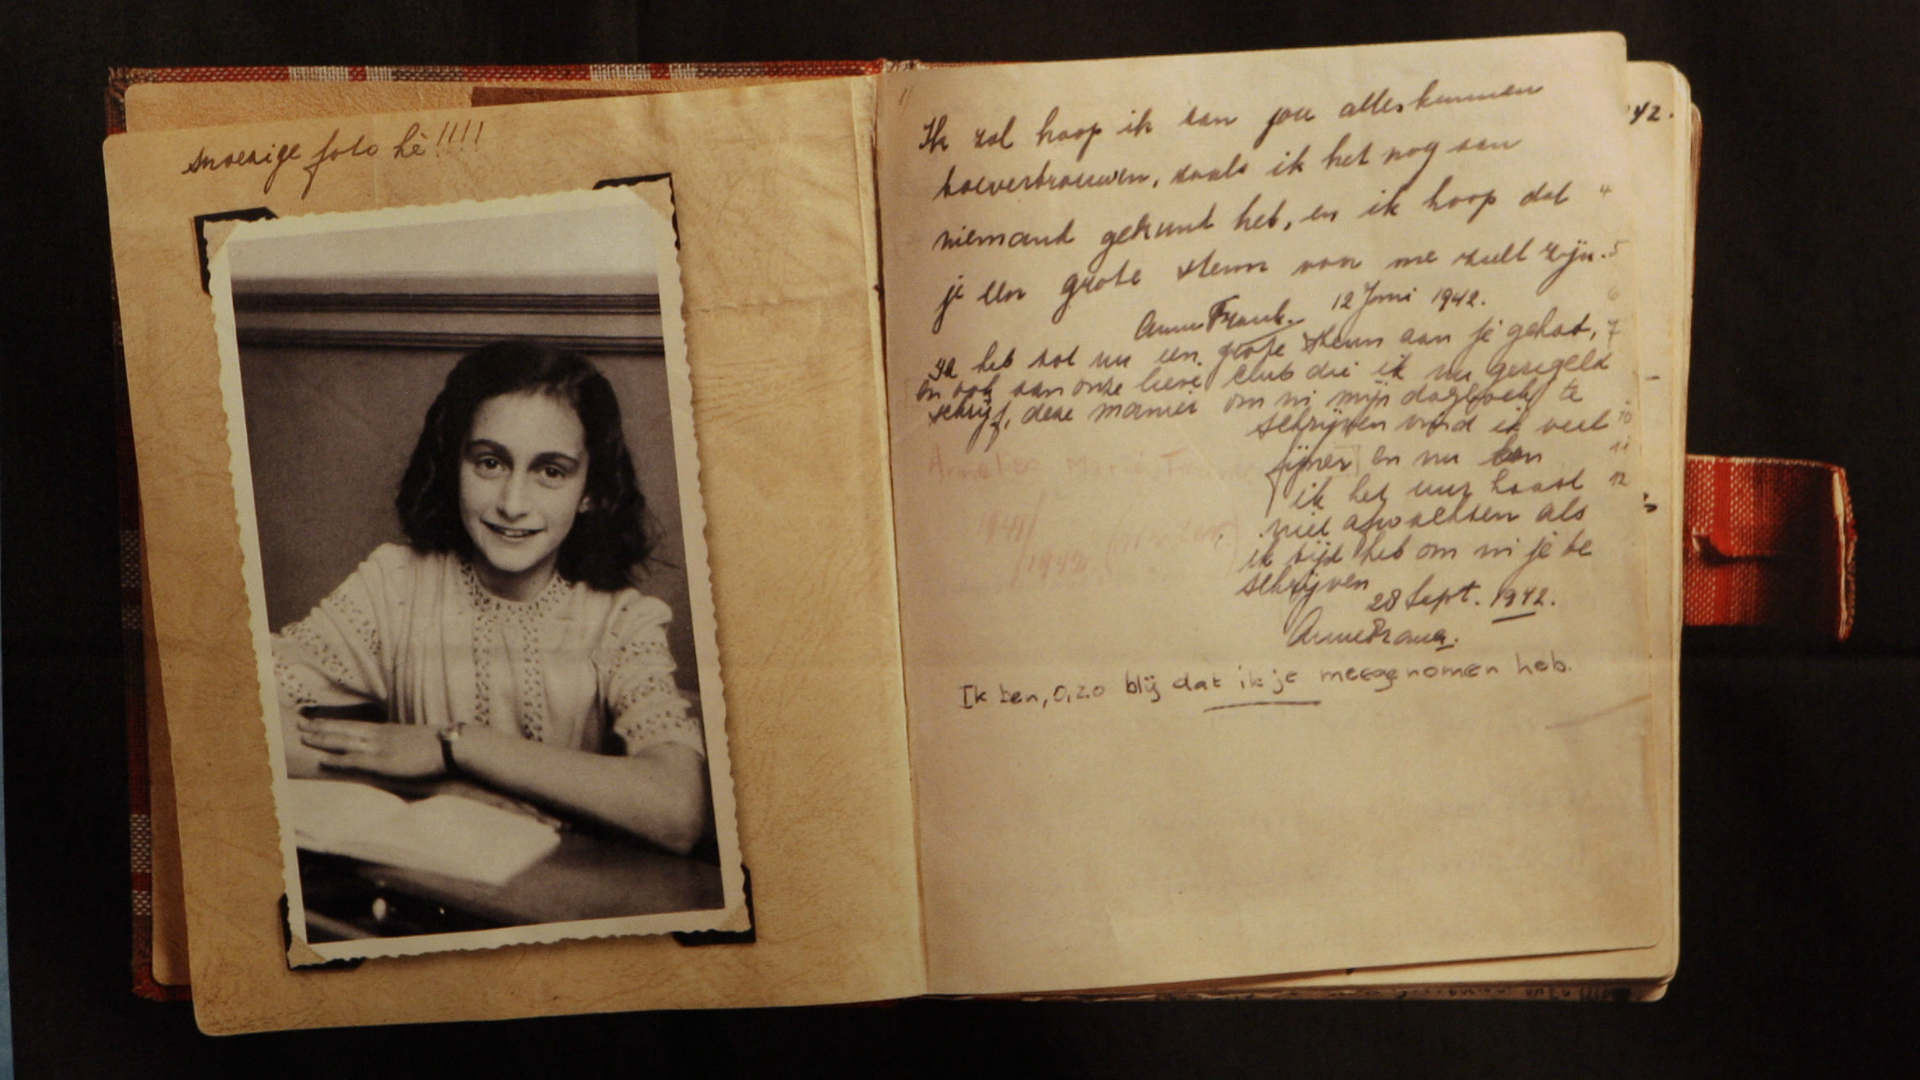 snoezige foto hè!!!!
Ik zal hoop ik aan jou alles kunnen
toevertrouwen, zoals ik het nog aan
niemand gekund heb, en ik hoop dat
je een grote steun van me zult zijn.
Anne Frank. 12 Juni 1942.
Ik heb tot nu een grote steun aan je gehad,
en ook aan onze lieve club die ik nu geregeld
schrijf, deze manier om in mijn dagboek te
schrijven vind ik veel
fijner en nu kan
ik het uur haast
niet afwachten als
ik tijd heb om in je te
schrijven
28 Sept. 1942.
Anne Frank.
Ik ben, o, zo blij dat ik je meegenomen heb.
42.
4
5
7
10
11
12